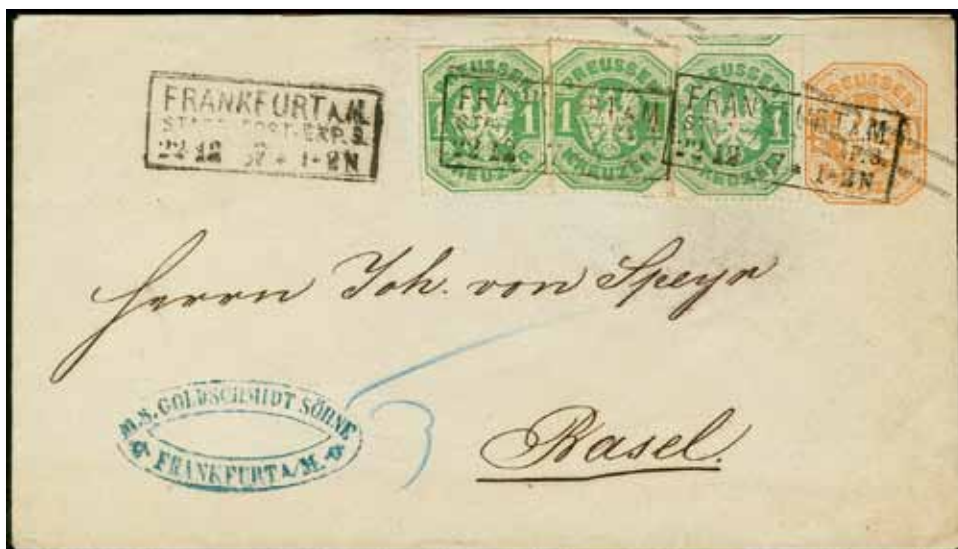 FRANKFURT A.M.
STADT-POST-EXP. 3.
22 12 67 * 1-2N
PREUSSEN
1 1
KREUZER
PREUSSEN
1
KREUZER
PREUSSEN
1
KREUZER
PREUSSEN
FRAN RT A.M
22 12
FRAN RT A.M.
22 12 * 1-2N
Herrn Joh. von Speyr
Basel.
M.S. GOLDSCHMIDT SÖHNE
FRANKFURT A/M.
3